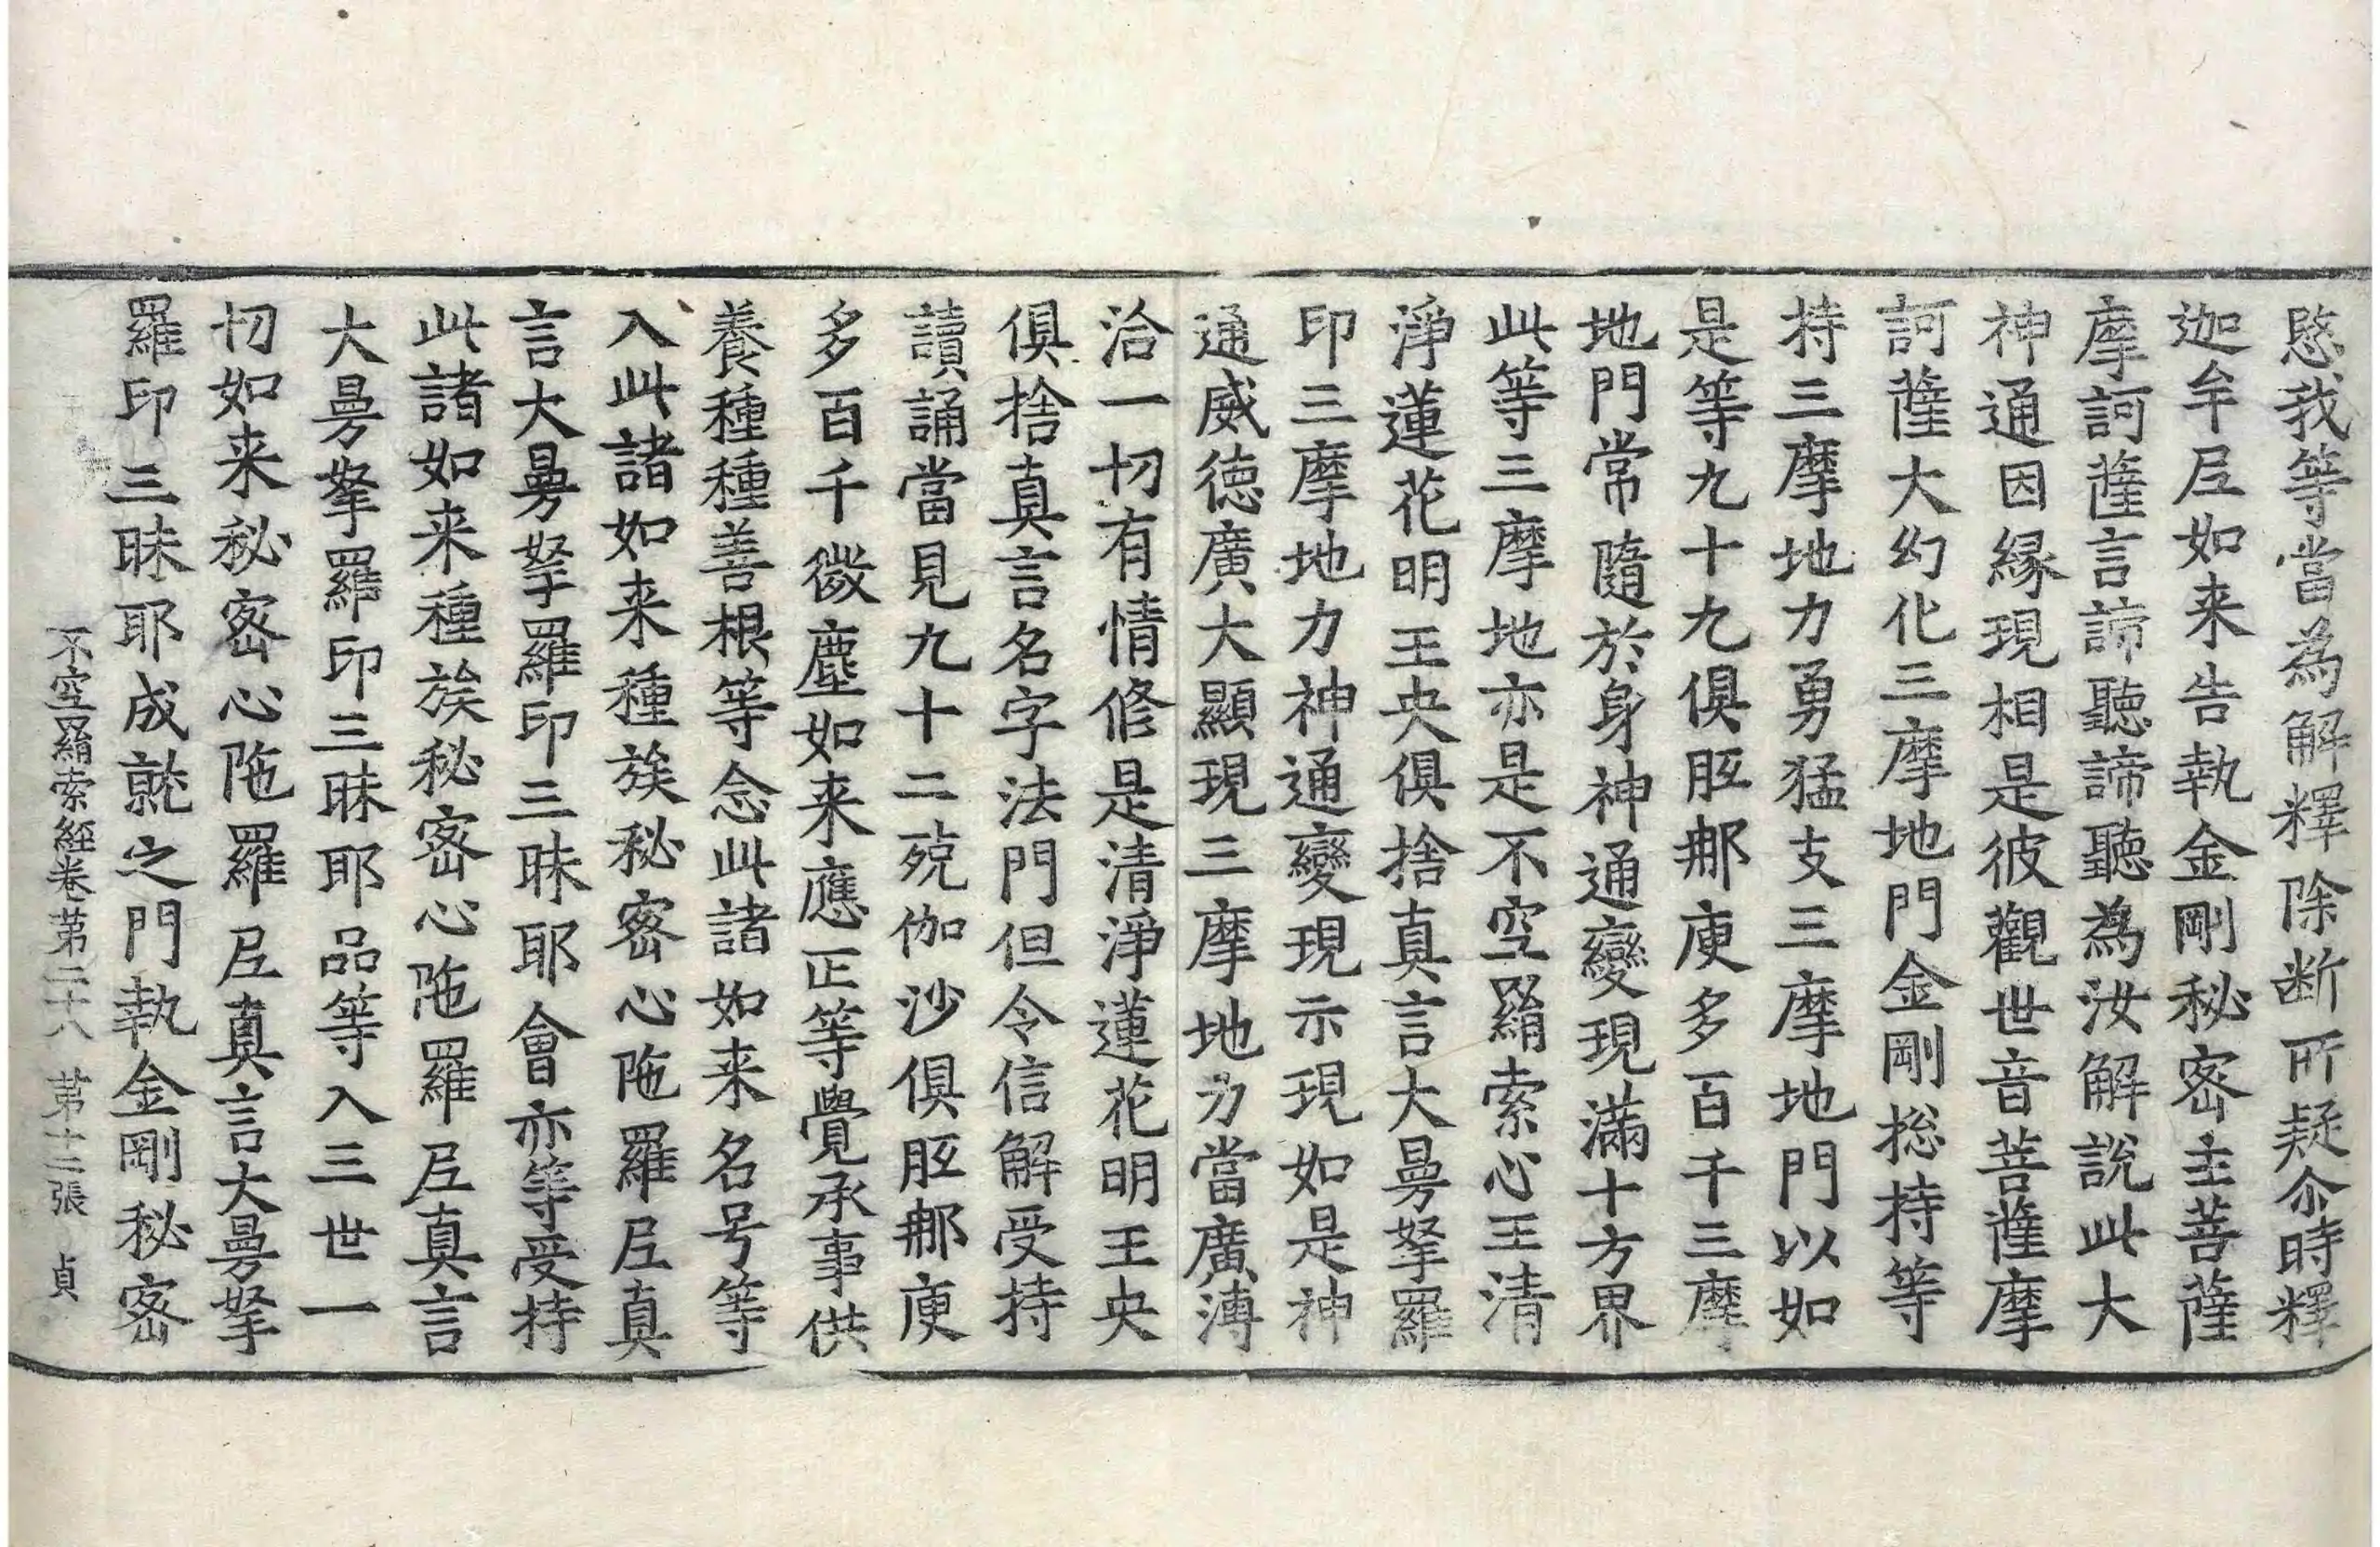 愍我等當為解釋除断所疑尒時釋
迦牟𡰱如来告執金剛秘密主菩薩
摩訶薩言諦聽諦聽為汝解說此大
神通因緣現相是彼觀世音菩薩摩
訶薩大幻化三摩地門金剛捴持等
持三摩地力勇猛支三摩地門以如
是等九十九俱胝那庾多百千三摩
地門常隨於身神通變現滿十方界
此等三摩地亦是不空羂索心王清
淨蓮花明王央俱捨真言大曼拏羅
印三摩地力神通變現示現如是神
通威徳廣大顯現三摩地力當廣溥
洽一切有情修是清淨蓮花明王央
俱捨真言名字法門但令信解受持
讀誦當見九十二殑伽沙俱胝那庾
多百千微塵如来應正等覺承事供
養種種善根等念此諸如来名号等
入此諸如来種族秘密心陁羅𡰱真
言大曼拏羅印三昧耶會亦等受持
此諸如来種族秘密心陁羅𡰱真言
大曼拏羅印三昧耶品等入三世一
切如来秘密心陁羅𡰱真言大曼拏
羅印三昧耶成就之門執金剛秘密
不空羂索經卷苐二十八 苐十二張 貞